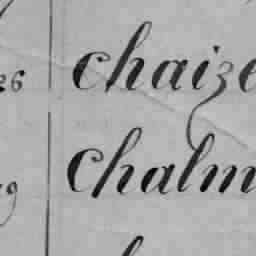 26 Chaize
9 Chalm